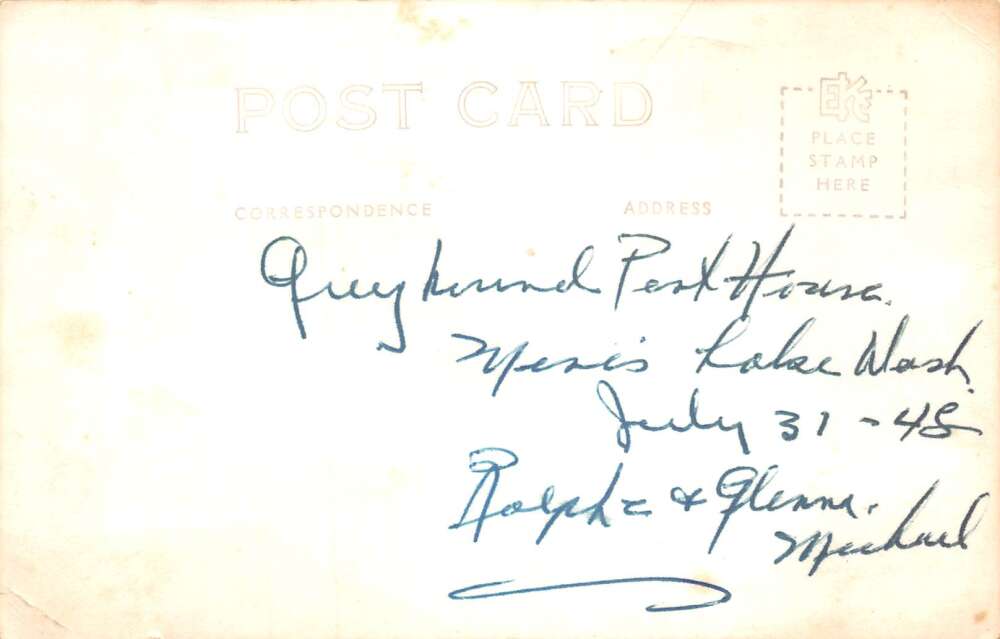 POST CARD
EKC
PLACE
STAMP
HERE
CORRESPONDENCE
ADDRESS
Greyhound Post House.
Lake Wash.
July 31 - 48
Ralph & Glenna.
Michael